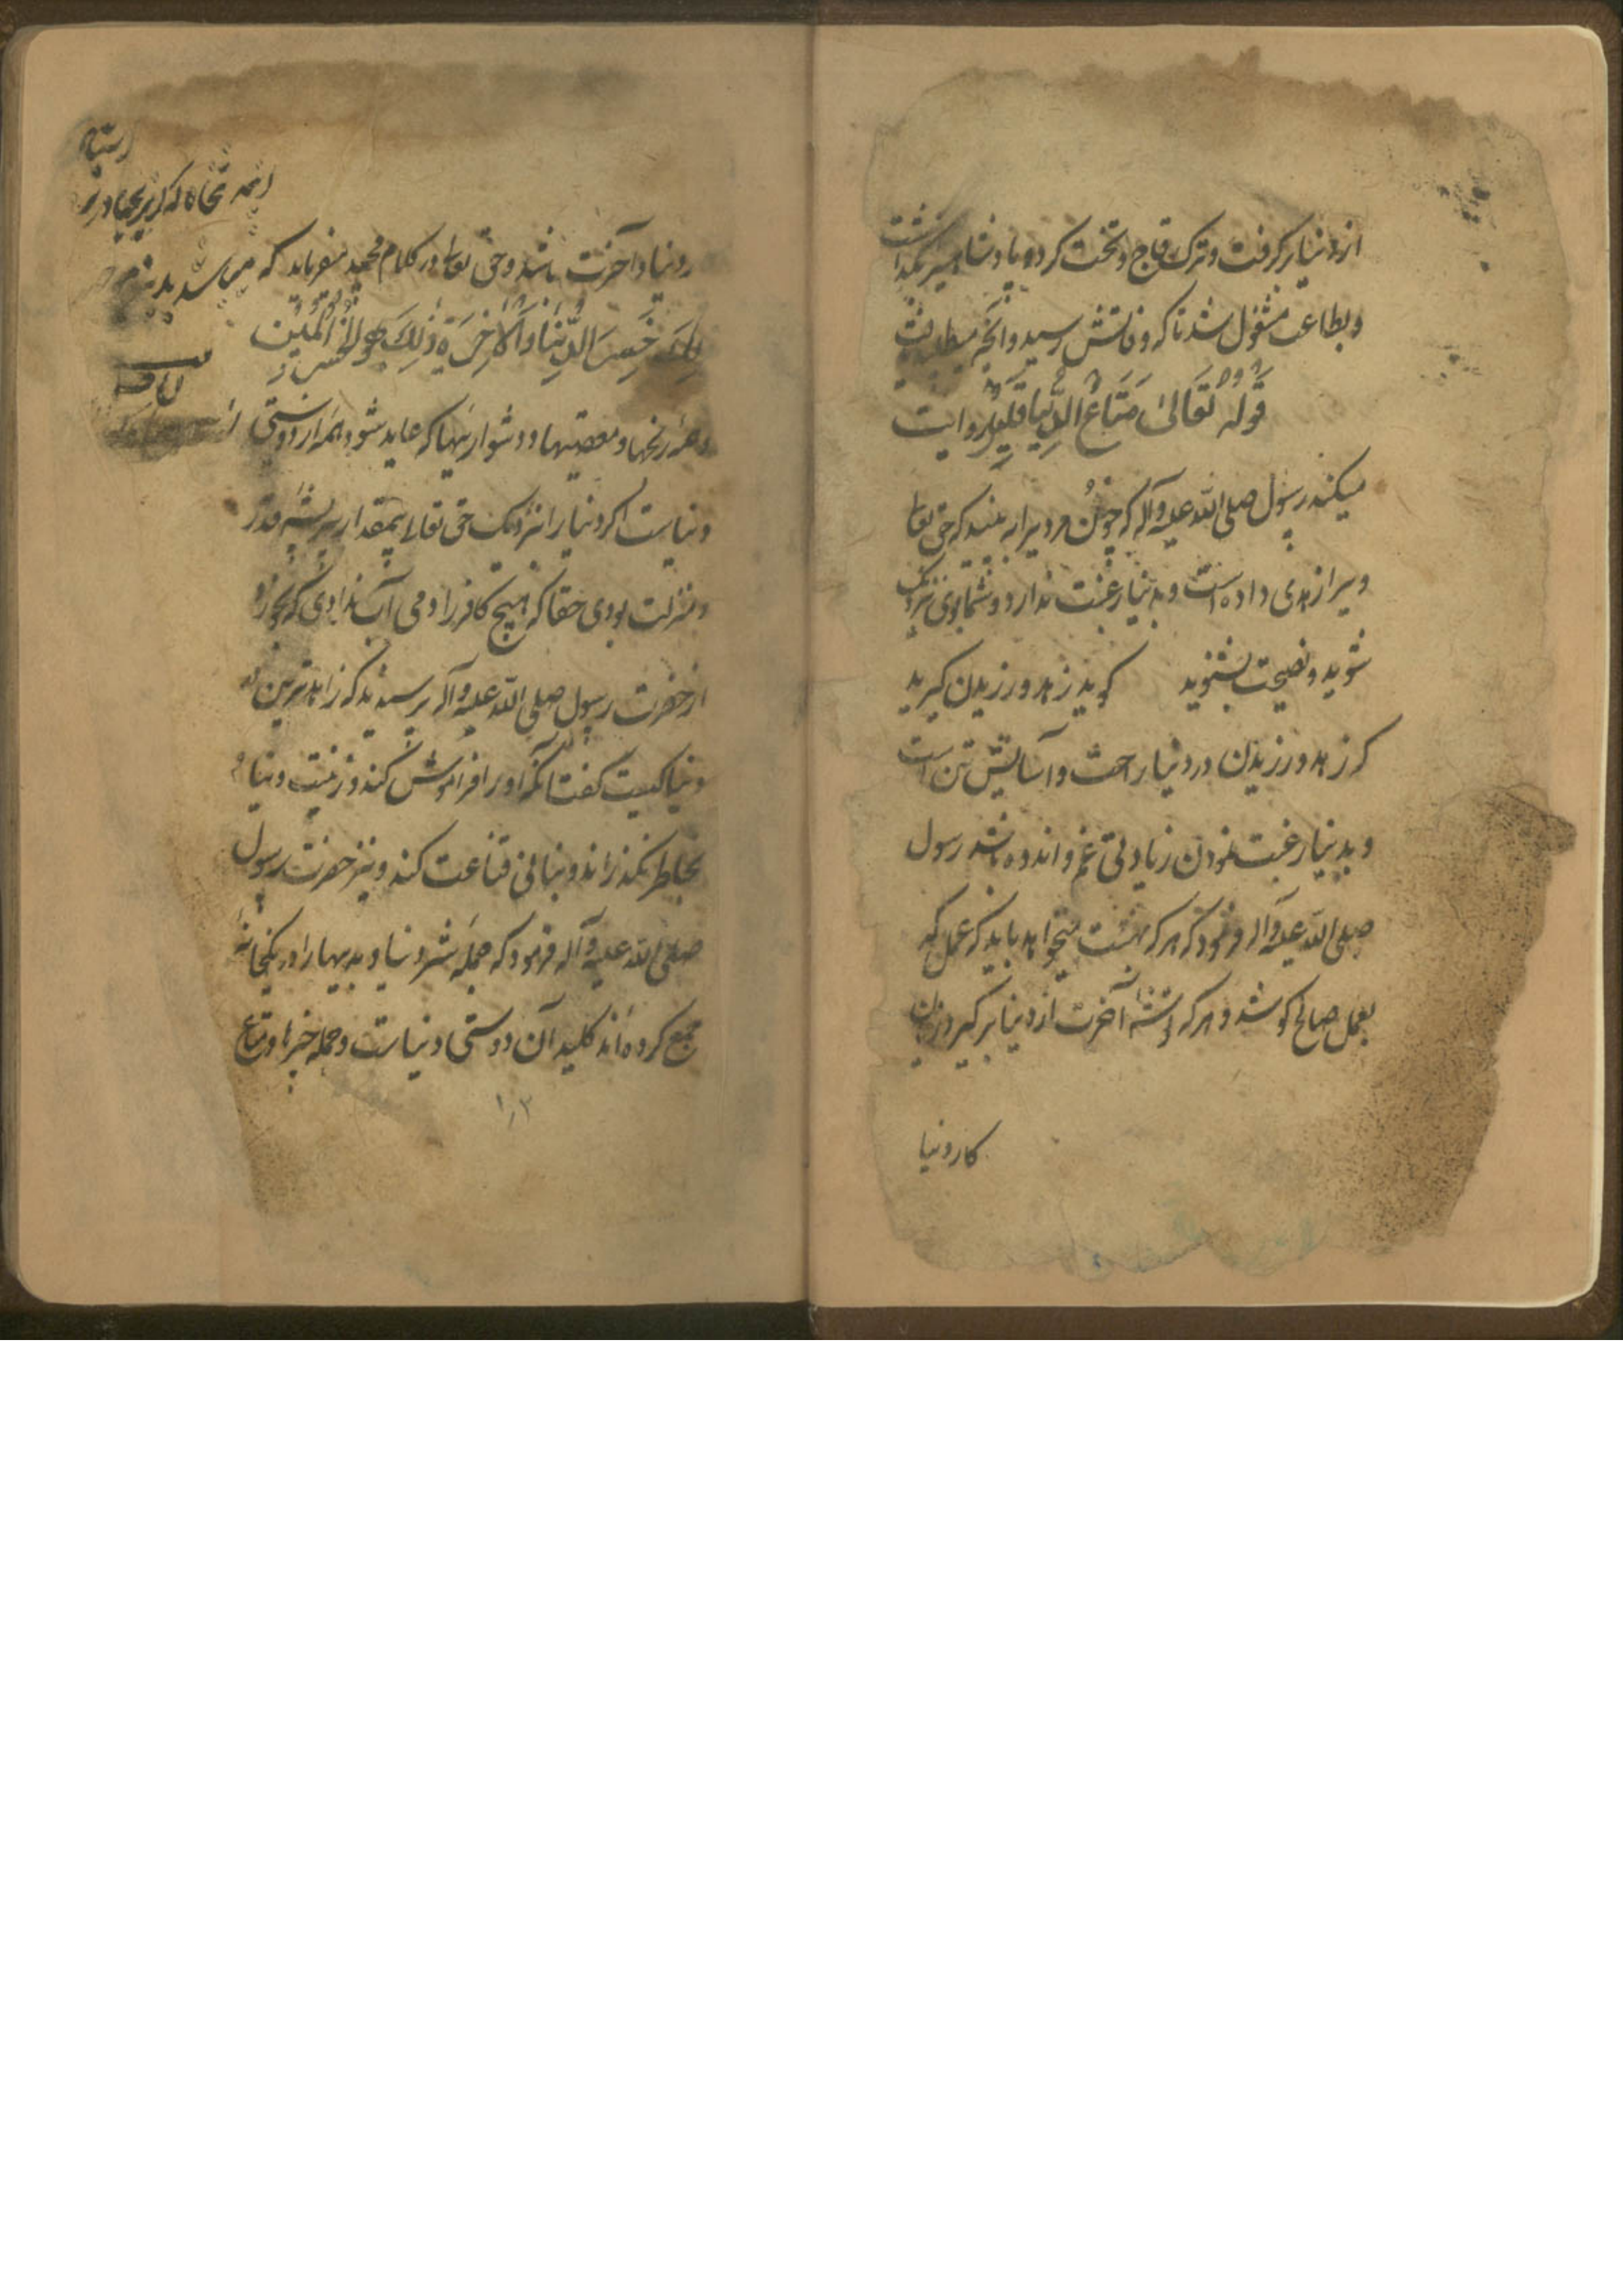 از دنیا برگرفت و ترک تاج و تخت کرد و پادشاهی بگذاشت
و بطاعت مشغول شد تا که وفاتش رسید و آنچه میطلبید یافت
قَولُه تَعَالىٰ مَتَاعُ الدُّنیَا قَلِیلٌ روایت
میکنند رسول صلی الله علیه وآله که چون مردیرا ببینید که حق تعالی
ویرا زهدی داده است و بدنیا رغبت ندارد و شما بوی نزدیک
شوید و نصیحت بشنوید گوید زهد ورزیدن گیرید
که زهد ورزیدن در دنیا راحت و آسایش تن است
و بدنیا رغبت نمودن زیادتی غم و اندوه باشد رسول
صلی الله علیه وآله فرمود که هر که بهشت میخواهد باید که عمل کند
بعمل صالح کوشد و هر که توشه آخرت از دنیا برگیرد
کار دنیا
در دنیا و آخرت باشد و حق تعالی در کلام مجید میفرماید که
خَسِرَ الدُّنیَا وَالآخِرَةَ ذٰلِكَ هُوَ الخُسرَانُ المُبِین
و همه رنجها و معصیتها و دشواریها که عاید شود همه از دوستی
دنیاست اگر دنیا را نزدیک حق تعالی بمقدار پر پشه قدر
و منزلت بودی حقا که هیچ کافر را دمی آب ندادی که بخورد
از حضرت رسول صلی الله علیه وآله پرسیدند که زاهدترین
دنیا کیست گفت آنکه گور را فراموش نکند و زینت دنیا
بخاطر نگذراند و بنانی قناعت کند و نیز حضرت رسول
صلی الله علیه وآله فرمود که جمله شر دنیا و بدیها را در یکخانه
جمع کرده اند کلید آن دوستی دنیاست و جمله خیرها و متاع
۱۰۲